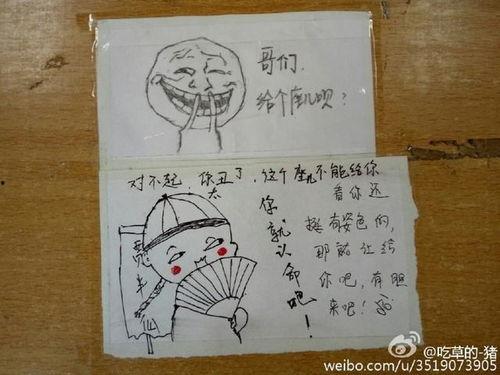 哥们.
给个座儿呗?
对不起,你太丑了,这个座儿不能给你
你就认命吧!
看你还
挺有姿色的,
那就让给
你吧,有胆
来吧!
半仙
@吃草的-猪
weibo.com/u/3519073905